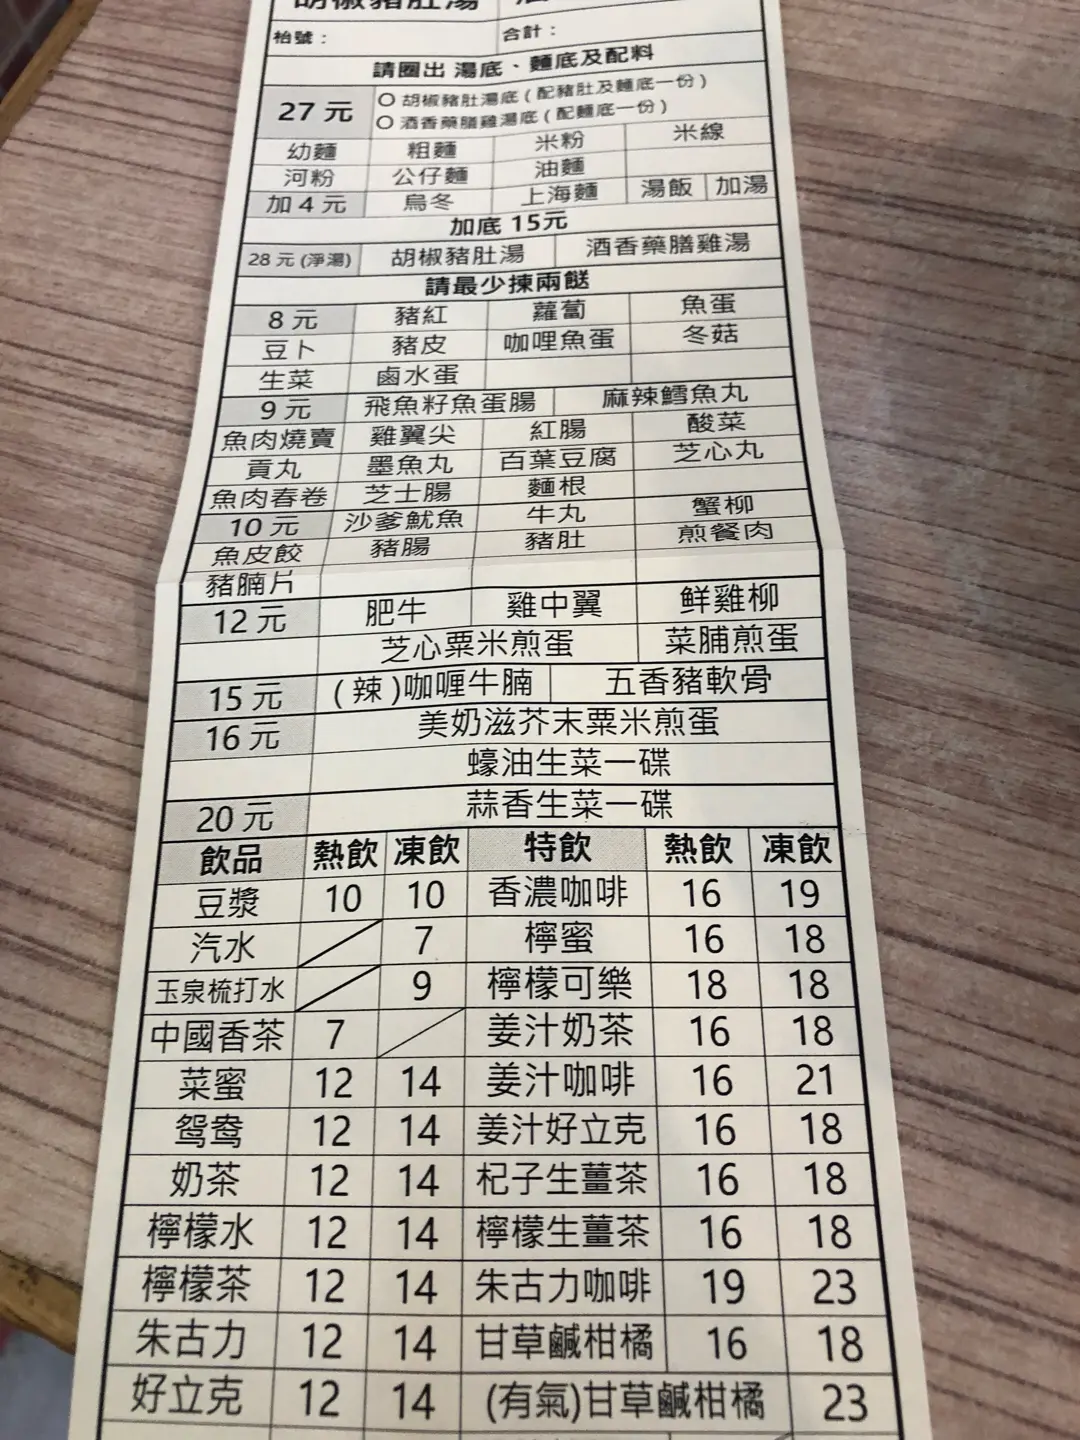 胡椒豬肚湯
枱號：	合計：
請圈出 湯底、麵底及配料
27 元	○ 胡椒豬肚湯底 ( 配豬肚及麵底一份 )
○ 酒香藥膳雞湯底 ( 配麵底一份 )
幼麵	粗麵	米粉	米線
河粉	公仔麵	油麵
加 4 元	烏冬	上海麵	湯飯	加湯
加底 15元
28 元 (淨湯)	胡椒豬肚湯	酒香藥膳雞湯
請最少揀兩餸
8 元	豬紅	蘿蔔	魚蛋
豆卜	豬皮	咖哩魚蛋	冬菇
生菜	鹵水蛋
9 元	飛魚籽魚蛋腸	麻辣鱈魚丸
魚肉燒賣	雞翼尖	紅腸	酸菜
貢丸	墨魚丸	百葉豆腐	芝心丸
魚肉春卷	芝士腸	麵根
10 元	沙爹魷魚	牛丸	蟹柳
魚皮餃	豬腸	豬肚	煎餐肉
豬腩片
12 元	肥牛	雞中翼	鮮雞柳
芝心粟米煎蛋	菜脯煎蛋
15 元	( 辣 )咖喱牛腩	五香豬軟骨
16 元	美奶滋芥末粟米煎蛋
蠔油生菜一碟
20 元	蒜香生菜一碟
飲品	熱飲	凍飲	特飲	熱飲	凍飲
豆漿	10	10	香濃咖啡	16	19
汽水	7	檸蜜	16	18
玉泉梳打水	9	檸檬可樂	18	18
中國香茶	7	姜汁奶茶	16	18
菜蜜	12	14	姜汁咖啡	16	21
鸳鸯	12	14	姜汁好立克	16	18
奶茶	12	14	杞子生薑茶	16	18
檸檬水	12	14	檸檬生薑茶	16	18
檸檬茶	12	14	朱古力咖啡	19	23
朱古力	12	14	甘草鹹柑橘	16	18
好立克	12	14	(有氣)甘草鹹柑橘	23